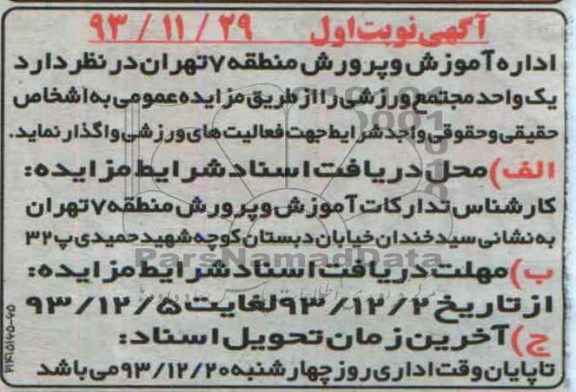 آگهی نوبت اول ۲۹ / ۱۱ / ۹۳
اداره آموزش و پرورش منطقه ۷ تهران در نظر دارد
یک واحد مجتمع ورزشی را از طریق مزایده عمومی به اشخاص
حقیقی و حقوقی واجد شرایط جهت فعالیت های ورزشی واگذار نماید.
الف) محل دریافت اسناد شرایط مزایده:
کارشناس تدارکات آموزش و پرورش منطقه ۷ تهران
به نشانی سید خندان خیابان دبستان کوچه شهید حمیدی پ ۳۲
ParsNamadData
ب) مهلت دریافت اسناد شرایط مزایده:
از تاریخ ۹۳/۱۲/۲ لغایت ۹۳/۱۲/۵
ج) آخرین زمان تحویل اسناد:
تا پایان وقت اداری روز چهارشنبه ۹۳/۱۲/۲۰ می باشد